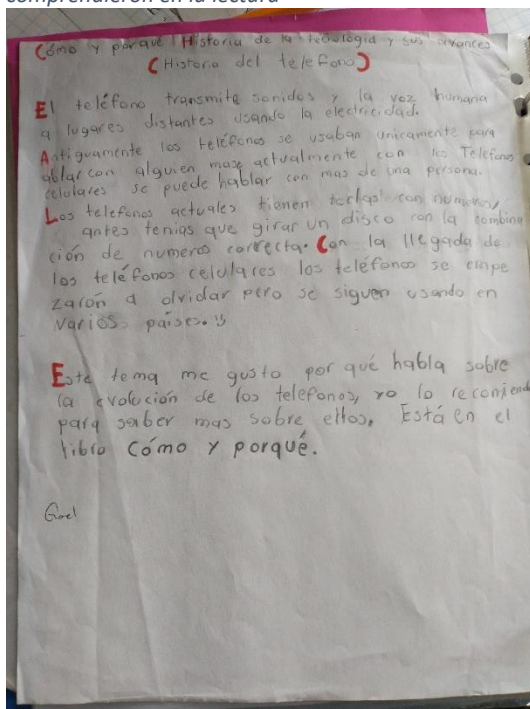 comprendieron en la lectura
Cómo y porqué Historia de la tecnología y sus avances
(Historia del telefono)
El teléfono transmite sonidos y la voz humana
a lugares distantes usando la electricidad.
Antiguamente los teléfonos se usaban unicamente para
ablar con alguien mas actualmente con los Telefonos
celulares se puede hablar con mas de una persona.
Los telefonos actuales tienen teclas con numeros,
antes tenias que girar un disco con la combina
ción de numeros correcta. Con la llegada de
los teléfonos celulares los teléfonos se empe
zarón a olvidar pero se siguen usando en
varios paises.
Este tema me gusto por qué habla sobre
la evolución de los telefonos, yo lo recomiend
para saber mas sobre ellos. Está en el
libro Cómo y porqué.
Gael